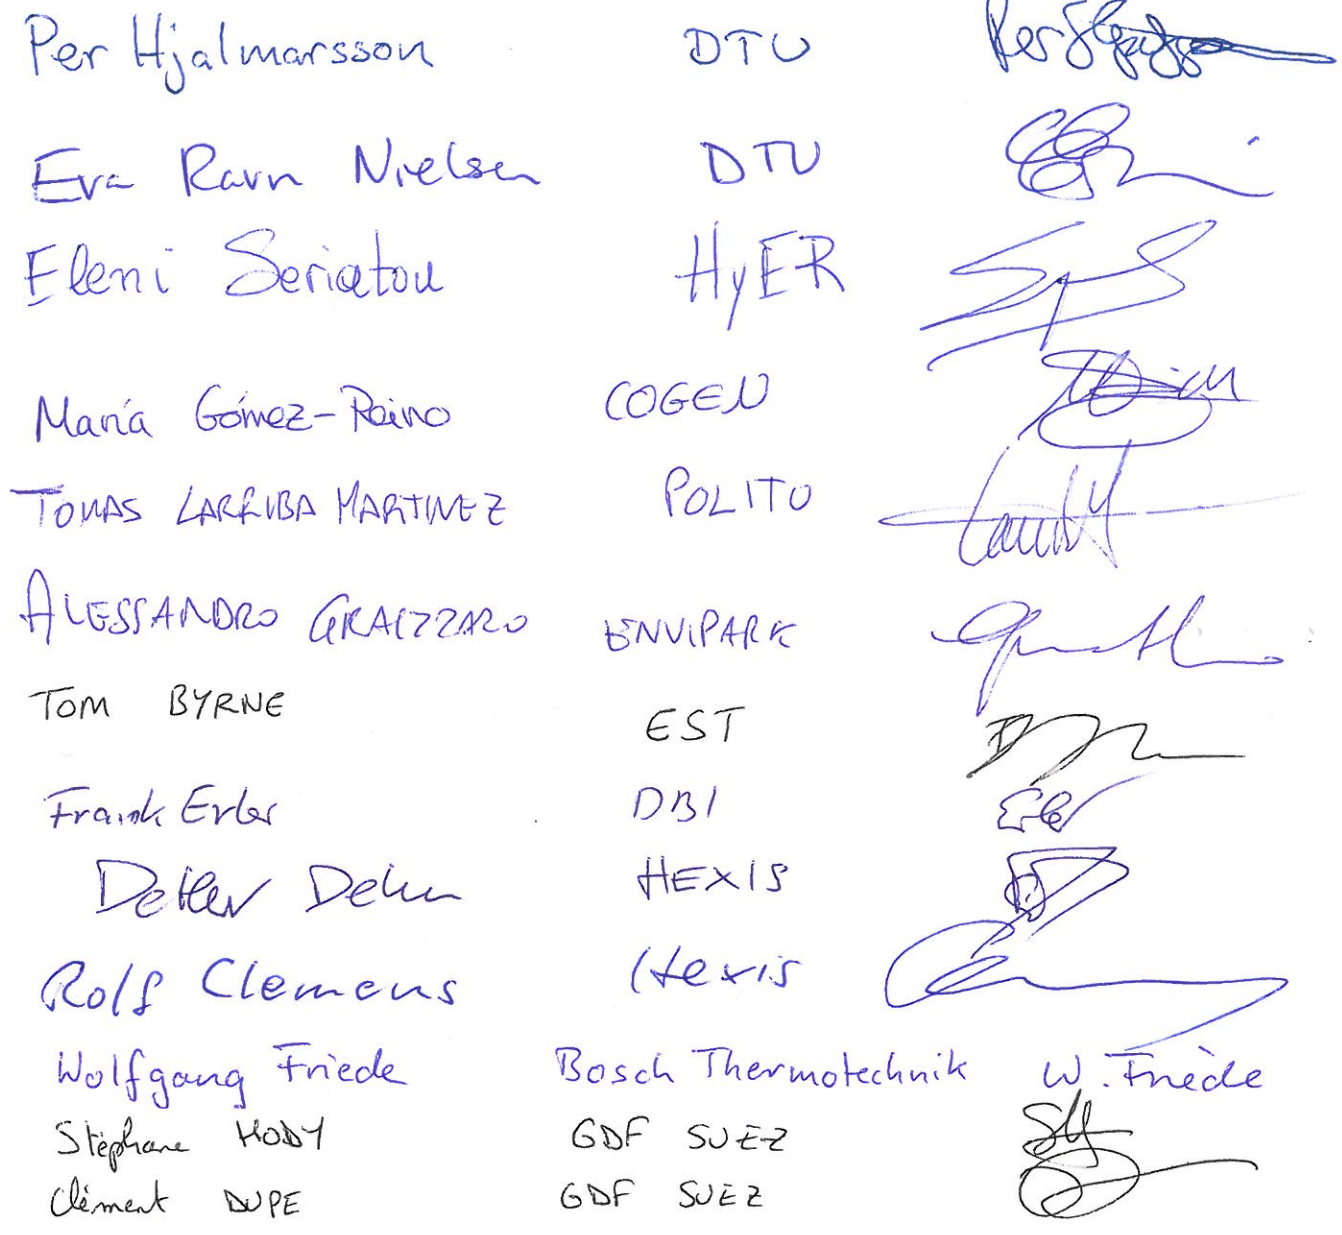 Per Hjalmarsson DTU
Eva Ravn Nielsen DTU
Eleni Seriatou HyER
María Gómez-Reino COGEN
TOMAS LARRUBA MARTINEZ POLITO
ALESSANDRO GRAIZZARO ENVIPARK
TOM BYRNE EST
Frank Erler DBI
Detlev Dehn HEXIS
Rolf Clemens Hexis
Wolfgang Friede Bosch Thermotechnik W. Friede
Stéphane HODY GDF SUEZ
Clément DUPE GDF SUEZ